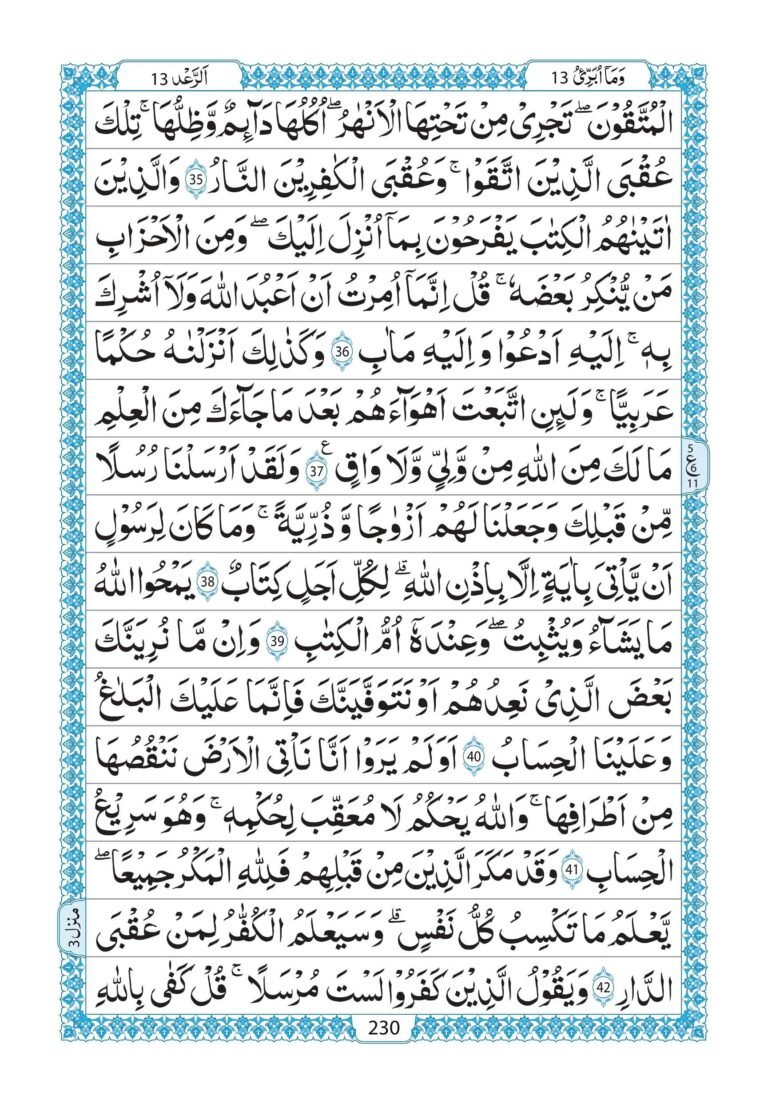 وَمَاۤ اُبَرِّئُ 13
اَلرَّعْد 13
الْمُتَّقُوْنَ ؕ تَجْرِيْ مِنْ تَحْتِهَا الْاَنْهٰرُ ؕ اُكُلُهَا دَآىِٕمٌ وَّظِلُّهَا ؕ تِلْكَ
عُقْبَى الَّذِيْنَ اتَّقَوْا ۚ وَعُقْبَى الْكٰفِرِيْنَ النَّارُ 35 وَالَّذِيْنَ
اٰتَيْنٰهُمُ الْكِتٰبَ يَفْرَحُوْنَ بِمَاۤ اُنْزِلَ اِلَيْكَ ۖ وَمِنَ الْاَحْزَابِ
مَنْ يُّنْكِرُ بَعْضَهٗ ۚ قُلْ اِنَّمَاۤ اُمِرْتُ اَنْ اَعْبُدَ اللّٰهَ وَلَاۤ اُشْرِكَ
بِهٖ ۚ اِلَيْهِ اَدْعُوْا وَاِلَيْهِ مَاٰبِ 36 وَكَذٰلِكَ اَنْزَلْنٰهُ حُكْمًا
عَرَبِيًّا ۚ وَلَىِٕنِ اتَّبَعْتَ اَهْوَآءَهُمْ بَعْدَ مَا جَآءَكَ مِنَ الْعِلْمِ
مَا لَكَ مِنَ اللّٰهِ مِنْ وَّلِيٍّ وَّلَا وَاقٍ 37 ع وَلَقَدْ اَرْسَلْنَا رُسُلًا
5 ع 6 11
مِّنْ قَبْلِكَ وَجَعَلْنَا لَهُمْ اَزْوٰجًا وَّذُرِّيَّةً ۚ وَمَا كَانَ لِرَسُوْلٍ
اَنْ يَّاْتِيَ بِاٰيَةٍ اِلَّا بِاِذْنِ اللّٰهِ ۗ لِكُلِّ اَجَلٍ كِتَابٌ 38 يَمْحُوا اللّٰهُ
مَا يَشَآءُ وَيُثْبِتُ ۖ وَعِنْدَهٗۤ اُمُّ الْكِتٰبِ 39 وَاِنْ مَّا نُرِيَنَّكَ
بَعْضَ الَّذِيْ نَعِدُهُمْ اَوْ نَتَوَفَّيَنَّكَ فَاِنَّمَا عَلَيْكَ الْبَلٰغُ
وَعَلَيْنَا الْحِسَابُ 40 اَوَلَمْ يَرَوْا اَنَّا نَاْتِي الْاَرْضَ نَنْقُصُهَا
مِنْ اَطْرَافِهَا ۚ وَاللّٰهُ يَحْكُمُ لَا مُعَقِّبَ لِحُكْمِهٖ ۚ وَهُوَ سَرِيْعُ
الْحِسَابِ 41 وَقَدْ مَكَرَ الَّذِيْنَ مِنْ قَبْلِهِمْ فَلِلّٰهِ الْمَكْرُ جَمِيْعًا ۖ
يَّعْلَمُ مَا تَكْسِبُ كُلُّ نَفْسٍ ۗ وَسَيَعْلَمُ الْكُفّٰرُ لِمَنْ عُقْبَى
منزل 3
الدَّارِ 42 وَيَقُوْلُ الَّذِيْنَ كَفَرُوْا لَسْتَ مُرْسَلًا ۚ قُلْ كَفٰى بِاللّٰهِ
230